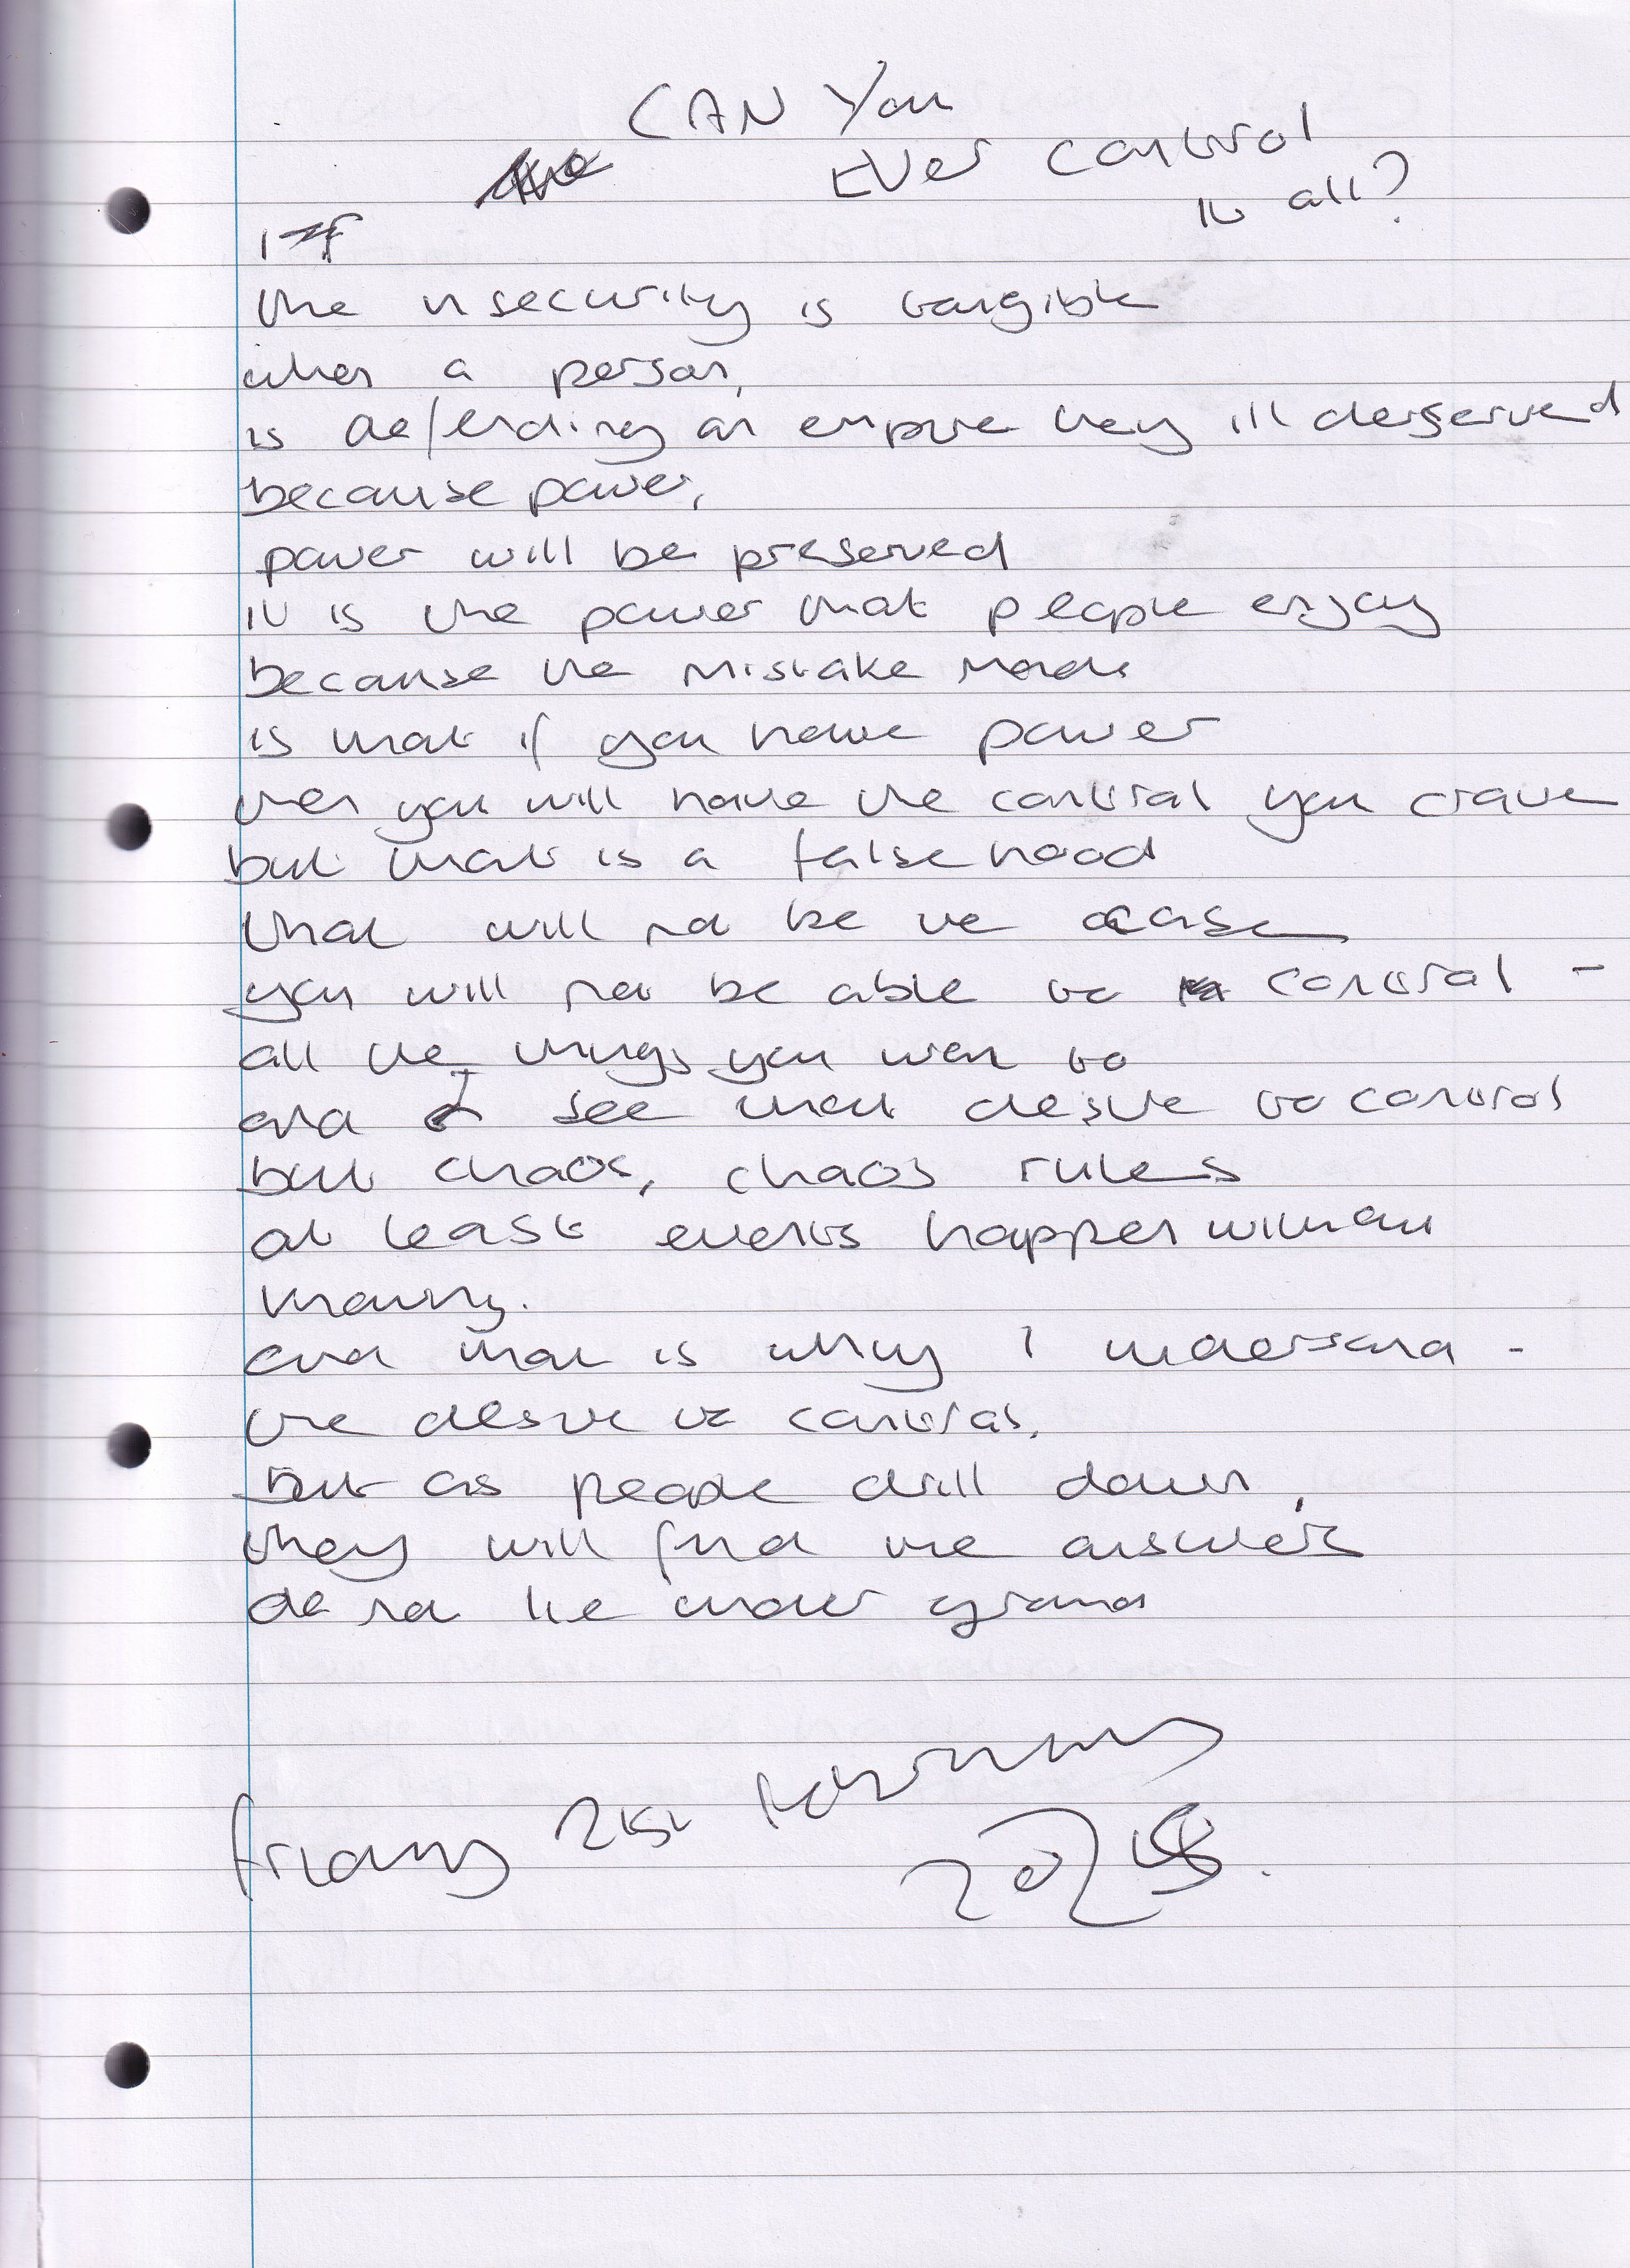 CAN You
Ever control
it all?
If
the insecurity is tangible
when a person,
is defending an empire they ill derserved
because power,
power will be preserved
it is the power that people enjoy
because the mistake made
is that if you have power
then you will have the control you crave
but that is a falsehood
that will not be the case
you will not be able to control -
all the things you want to
and I see that desire to control
but chaos, chaos rules
at least events happen without
knowing.
and that is why I understand -
the desire to control.
But as people drill down,
they will find the answers
do not lie under ground
Friday 21st February
2025.